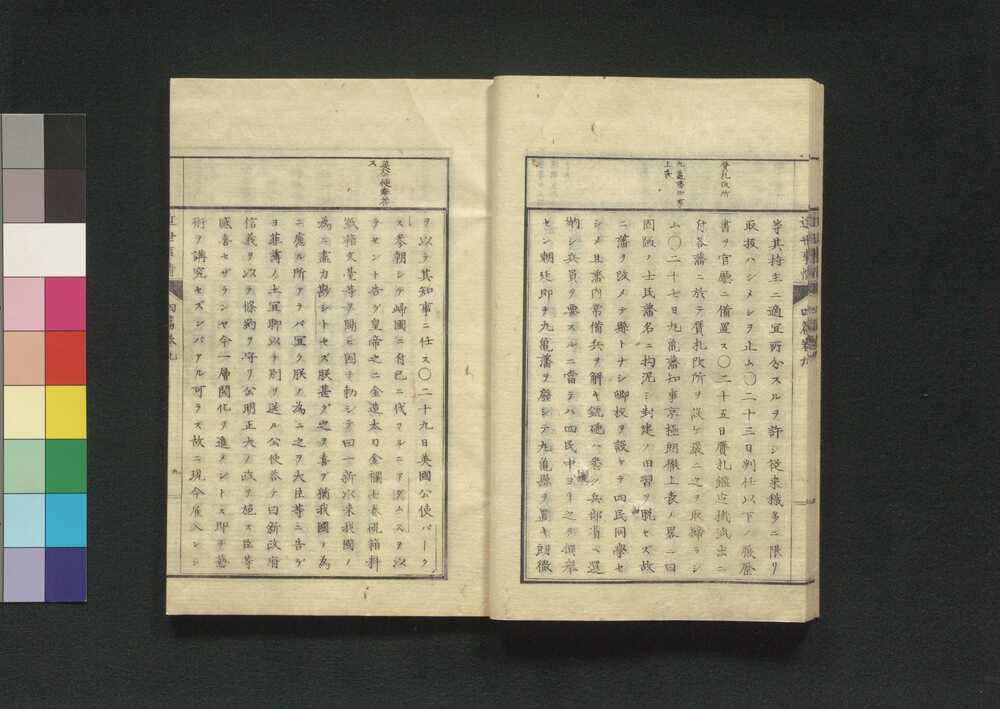 等其持主ニ適宜所分スルヲ許シ従来穢多ニ限リ
取扱ハシメシヲ止ム〇二十三日判任以下ノ履歴
書ヲ官廳ニ備置ス〇二十五日贋札鑑定掛派出ニ
付各藩ニ於テ贋札改所ヲ設ケ嚴ニ之ヲ取締ラシ
ム〇二十七日九龜藩知事京極朗徹上表ノ畧ニ曰
因臣ノ士民藩名ニ拘泥シ封建ノ旧習ヲ脱セズ故
ニ藩ヲ改メテ縣トナシ郷校ヲ設ケテ四民同學セ
シメ且藩内常備兵ヲ解キ銃砲ハ悉ク兵部省ヘ還
納シ兵員ヲ要スルニ當テハ四民中ヨリ之ヲ撰擧
セン朝廷即チ九龜藩ヲ廢シテ九龜縣ヲ置キ朗徹
贋札改所
上表
近世事情
四篇巻九
ヲ以テ其知事ニ任ス〇二十九日英國公使パーク
ス参朝シテ帰國ニ付已ニ代ワルニアダムスヲ以
テセント告グ皇帝之ニ金造太刀金襴七巻硯箱料
紙箱文臺等ヲ賜ヒ因テ勅シテ曰一新以来我國ノ
為ニ盡力尠シトセズ朕甚ダ之ヲ喜ブ猶我國ヲ為
ニ慮ル所アラバ宜ク朕ノ為ニ之ヲ大臣等ニ告ゲ
ヨ菲薄ノ土宜聊以テ別ヲ送ル公使答テ曰新政府
信義ヲ以テ條約ヲ守リ公明正大ノ政ヲ施ス臣等
感喜セザランヤ今一層開化ヲ進メントス即チ藝
術ヲ講究セズンバアル可ラズ故ニ現今雇入シシ
英公使奉答
ス
四篇巻九
九